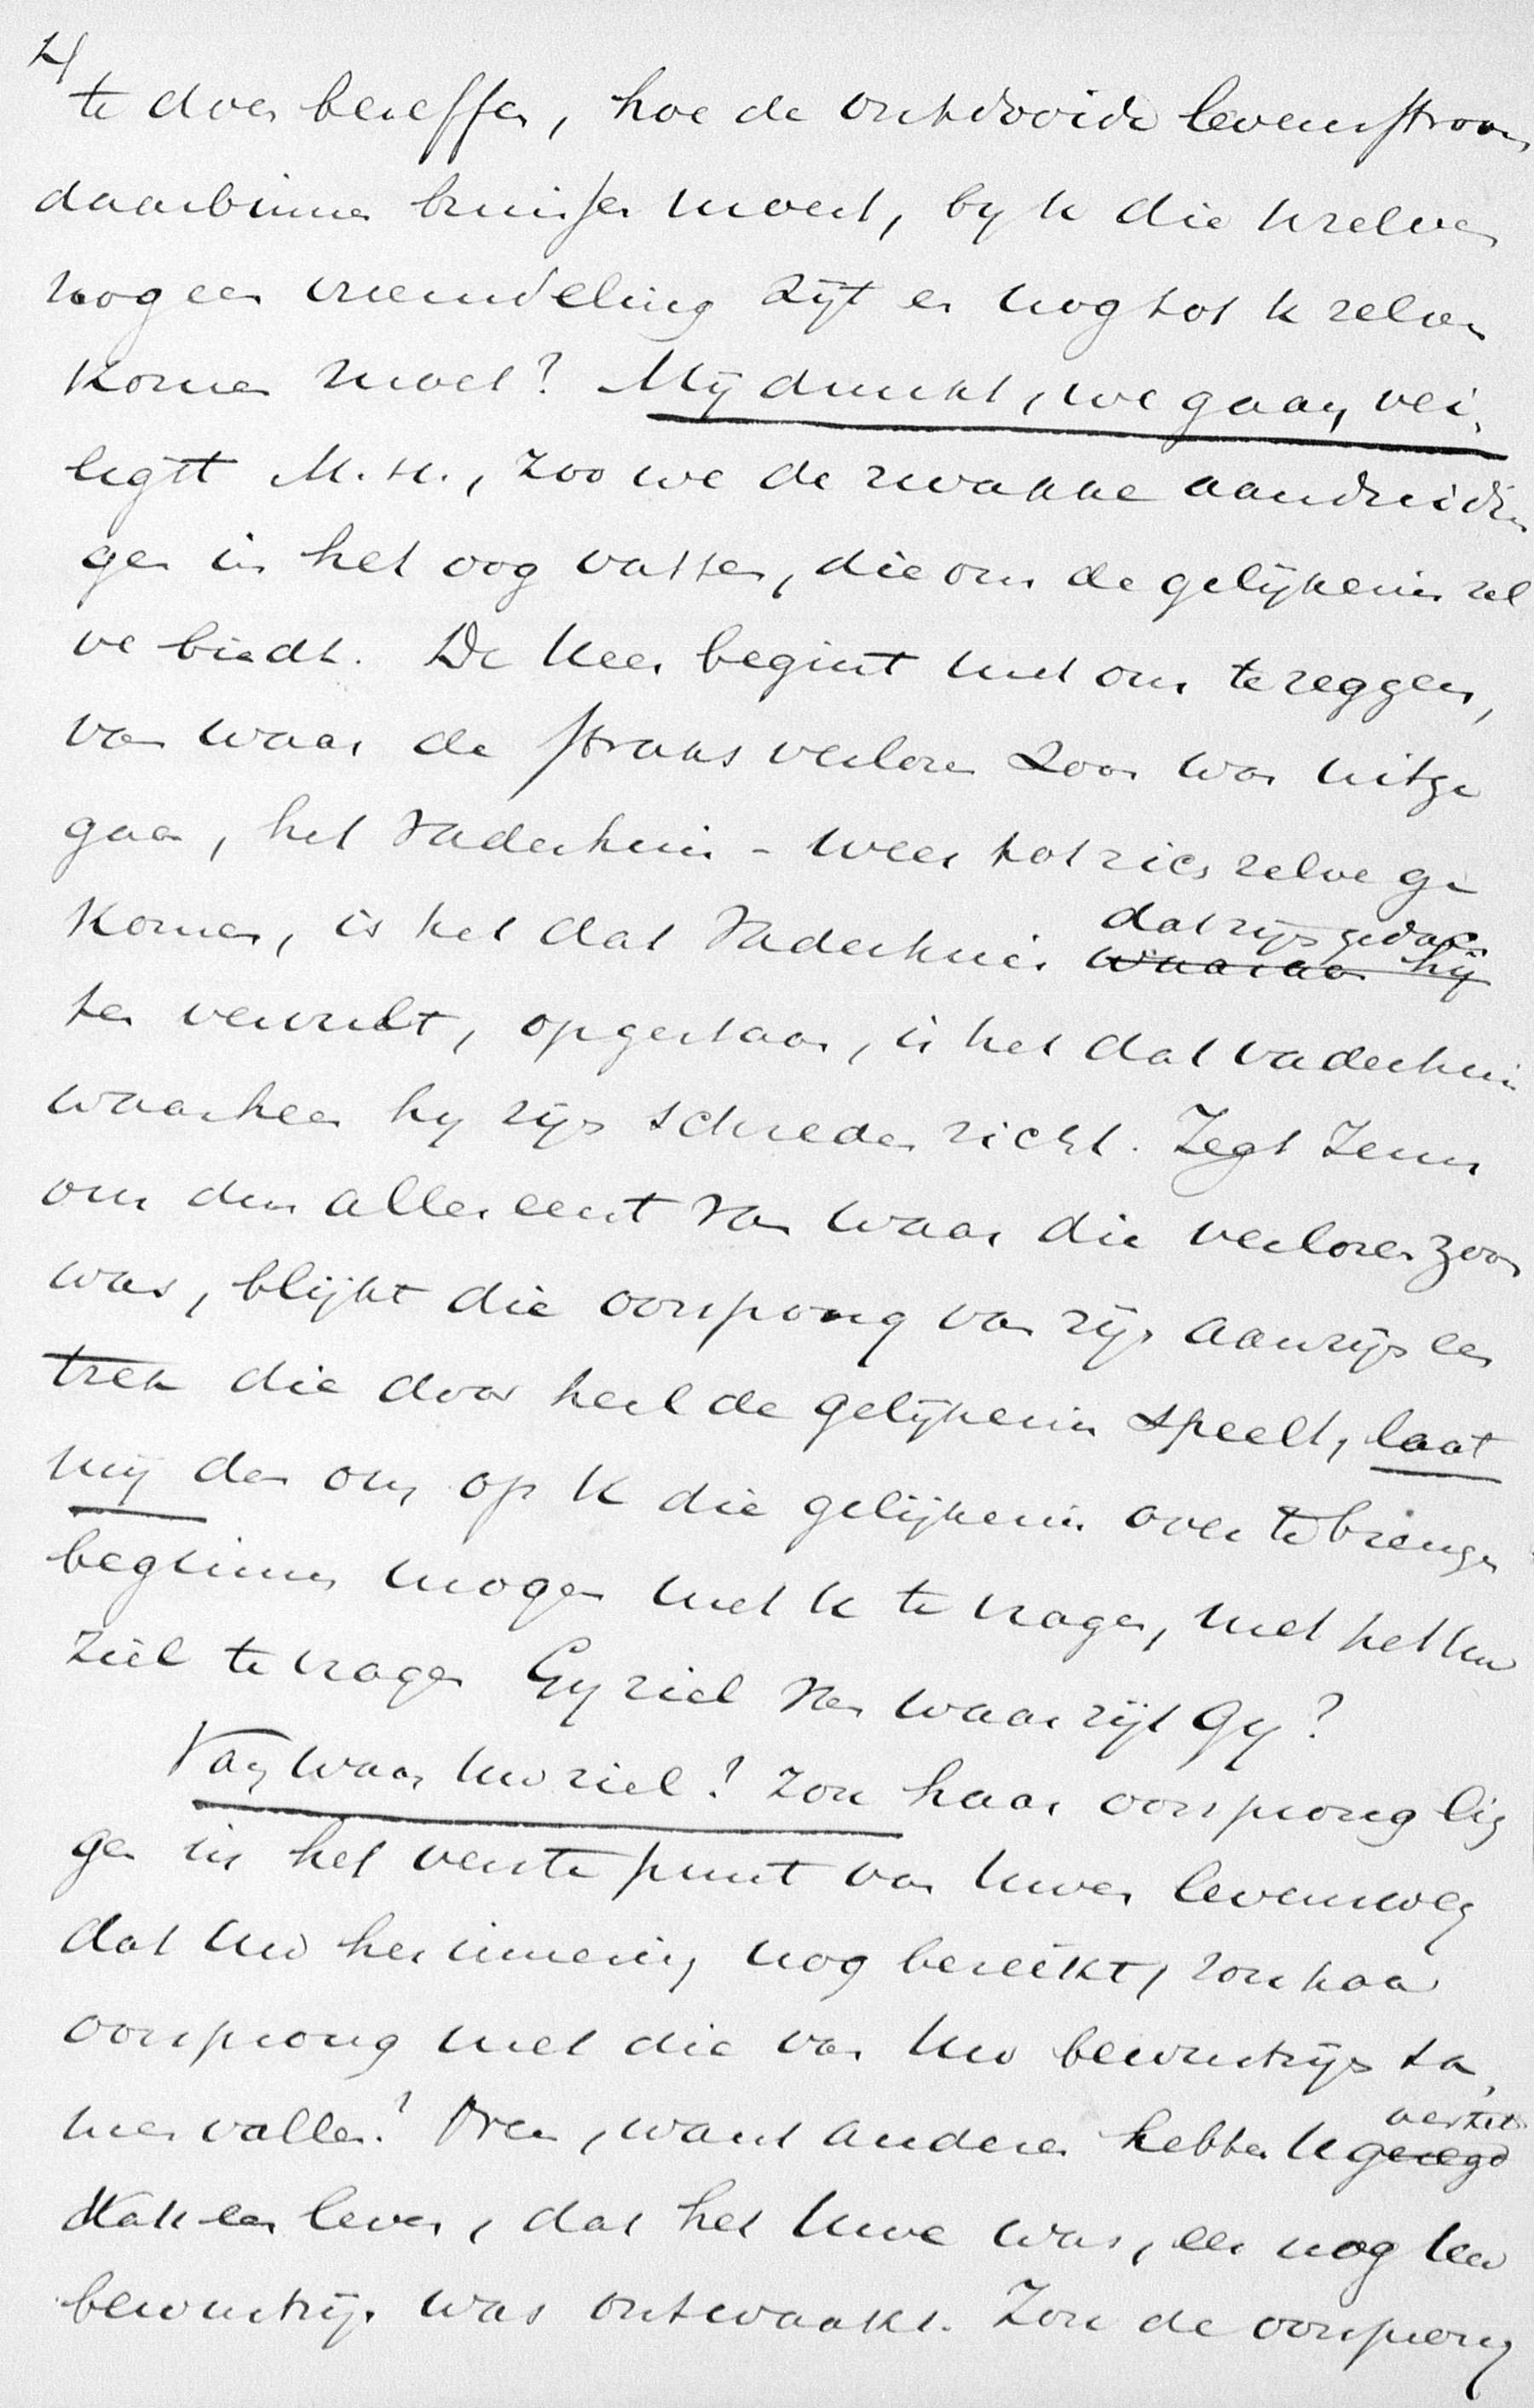 4/
te doen beseffen, hoe de ontdooide levensstroom
daarbinnen bruisen moest, by U die Uzelven
nog een vreemdeling zijt en nog tot U zelven
komen moet? Mij dunkt, we gaan vei-
ligst M.H., zoo we de zwakke aanduidin
gen in het oog vatten, die ons de gelijkenis zel
ve biedt. De Heer begint met ons te zeggen,
van waar de straks verloren Zoon was uitge
gaan, het Vaderhuis - weer tot zich zelve ge
komen, is het dat Vaderhuis waaraan hij dat zijn gedach
ten vervult, opgestaan, is het dat vaderhuis
waarheen hy zijn schreden richt. Zegt Jezus
ons dus allereerst van waar die verloren zoon
was, blijkt die oorsprong van zijn aanzijn een
trek die door heel de gelijkenis speelt, laat
mij dan om op U die gelijkenis over te brengen
beginnen mogen met U te vragen, met het Uw
ziel te vragen Gy ziel van waar zijt gy?
Van waar Uw ziel? Zou haar oorsprong lig
gen in het verste punt van Uwen levensweg
dat Uw herinnering nog bereikt, zou haar
oorsprong met die van Uw bewustzijn za-
men vallen? Neen, want anderen hebben U gezegd vertelt
van een leven, dat het Uwe was, eer nog Uw
bewustzijn was ontwaakt. Zou de oorsprong